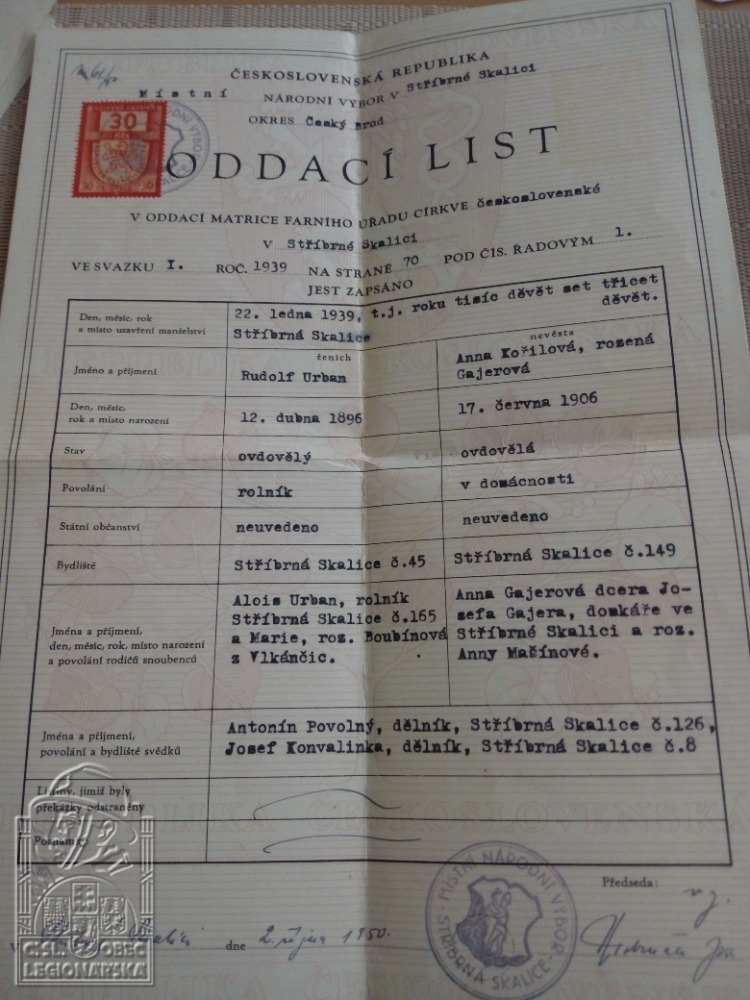 ČESKOSLOVENSKÁ REPUBLIKA
Místní NÁRODNÍ VÝBOR V Stříbrné Skalici
OKRES Český Brod
30
ODDACÍ LIST
V ODDACÍ MATRICE FARNÍHO ÚŘADU CÍRKVE československé
V Stříbrné Skalici
VE SVAZKU I. ROČ. 1939 NA STRANĚ 70 POD ČÍS. ŘADOVÝM 1.
JEST ZAPSÁNO
Den, měsíc, rok
a místo uzavření manželství
22. ledna 1939, t.j. roku tisíc děvět set třicet
děvět.
Stříbrná Skalice
ženich
nevěsta
Jméno a příjmení
Rudolf Urban
Anna Kořilová, rozená
Gajerová
Den, měsíc,
rok a místo narození
12. dubna 1896
17. června 1906
Stav
ovdovělý
ovdovělá
Povolání
rolník
v domácnosti
Státní občanství
neuvedeno
neuvedeno
Bydliště
Stříbrná Skalice č.45
Stříbrná Skalice č.149
Jména a příjmení,
den, měsíc, rok, místo narození
a povolání rodičů snoubenců
Alois Urban, rolník
Stříbrná Skalice č.165
a Marie, roz. Boubínová
z Vlkánčic.
Anna Gajerová dcera Jo-
sefa Gajera, domkáře ve
Stříbrné Skalici a roz.
Anny Mašínové.
Jména a příjmení,
povolání a bydliště svědků
Antonín Povolný, dělník, Stříbrná Skalice č.126,
Josef Konvalinka, dělník, Stříbrná Skalice č.8
Listiny, jimiž byly
překážky odstraněny
Poznámky
Předseda:
V
dne 2. října 1950.
MÍSTNÍ NÁRODNÍ VÝBOR
STŘÍBRNÁ SKALICE
ČSL. OBEC
LEGIONÁŘSKÁ